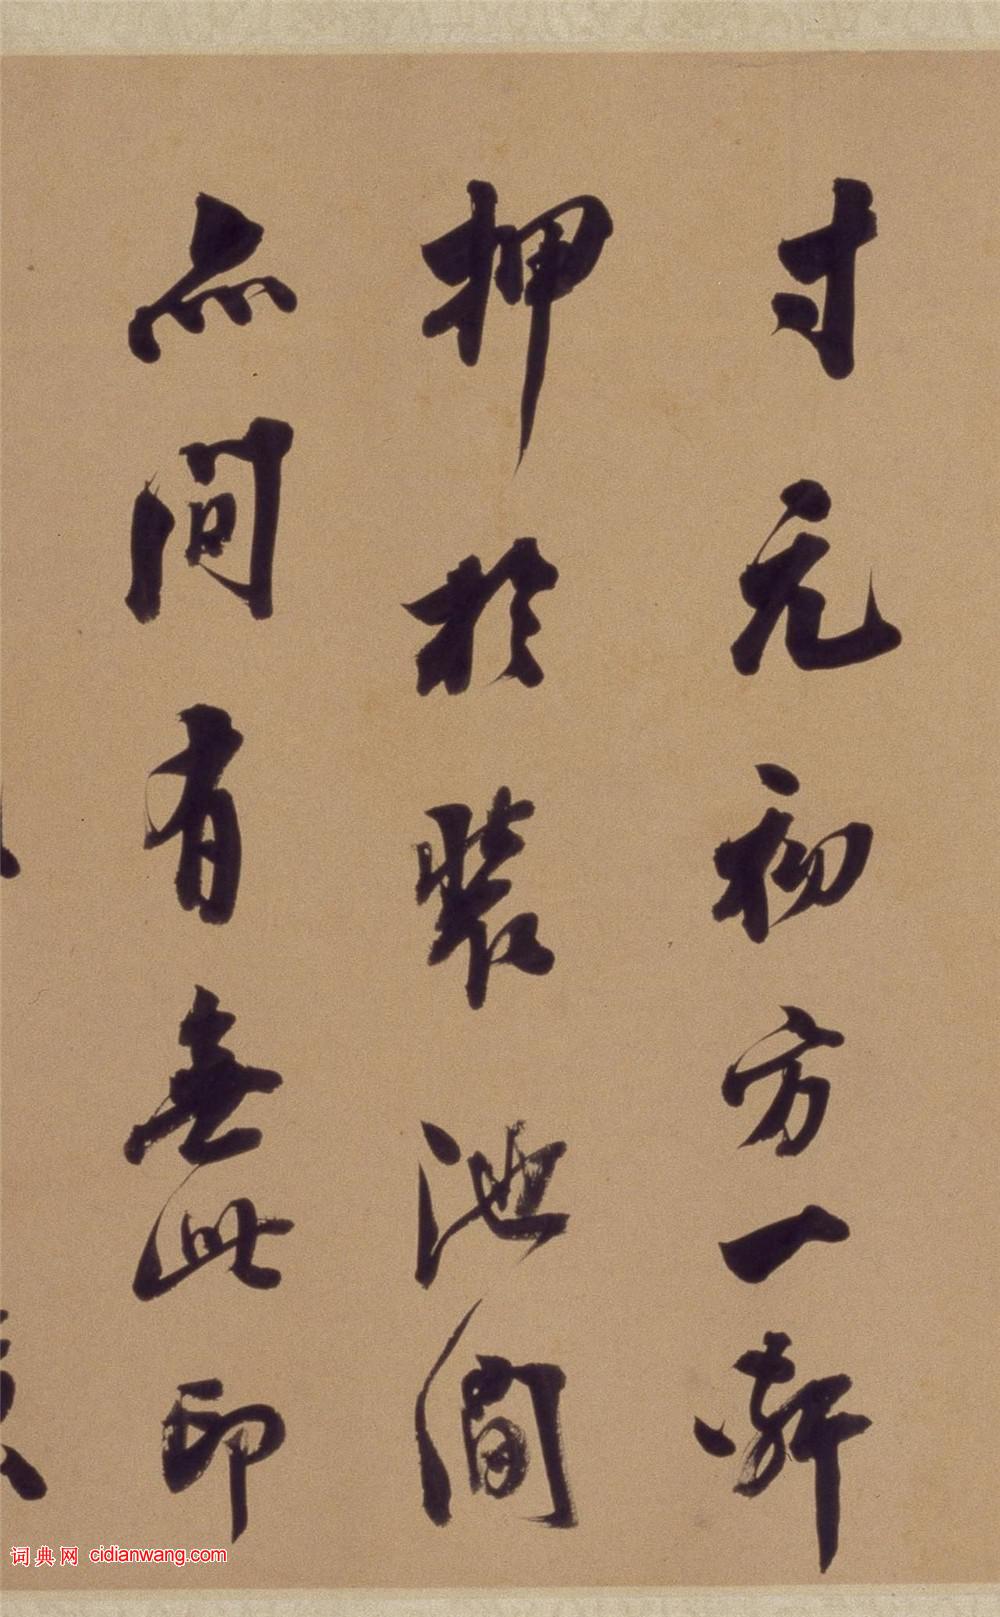 寸元初方一
押於裝池間
亦間有無此印
词典网 cidianwang.com